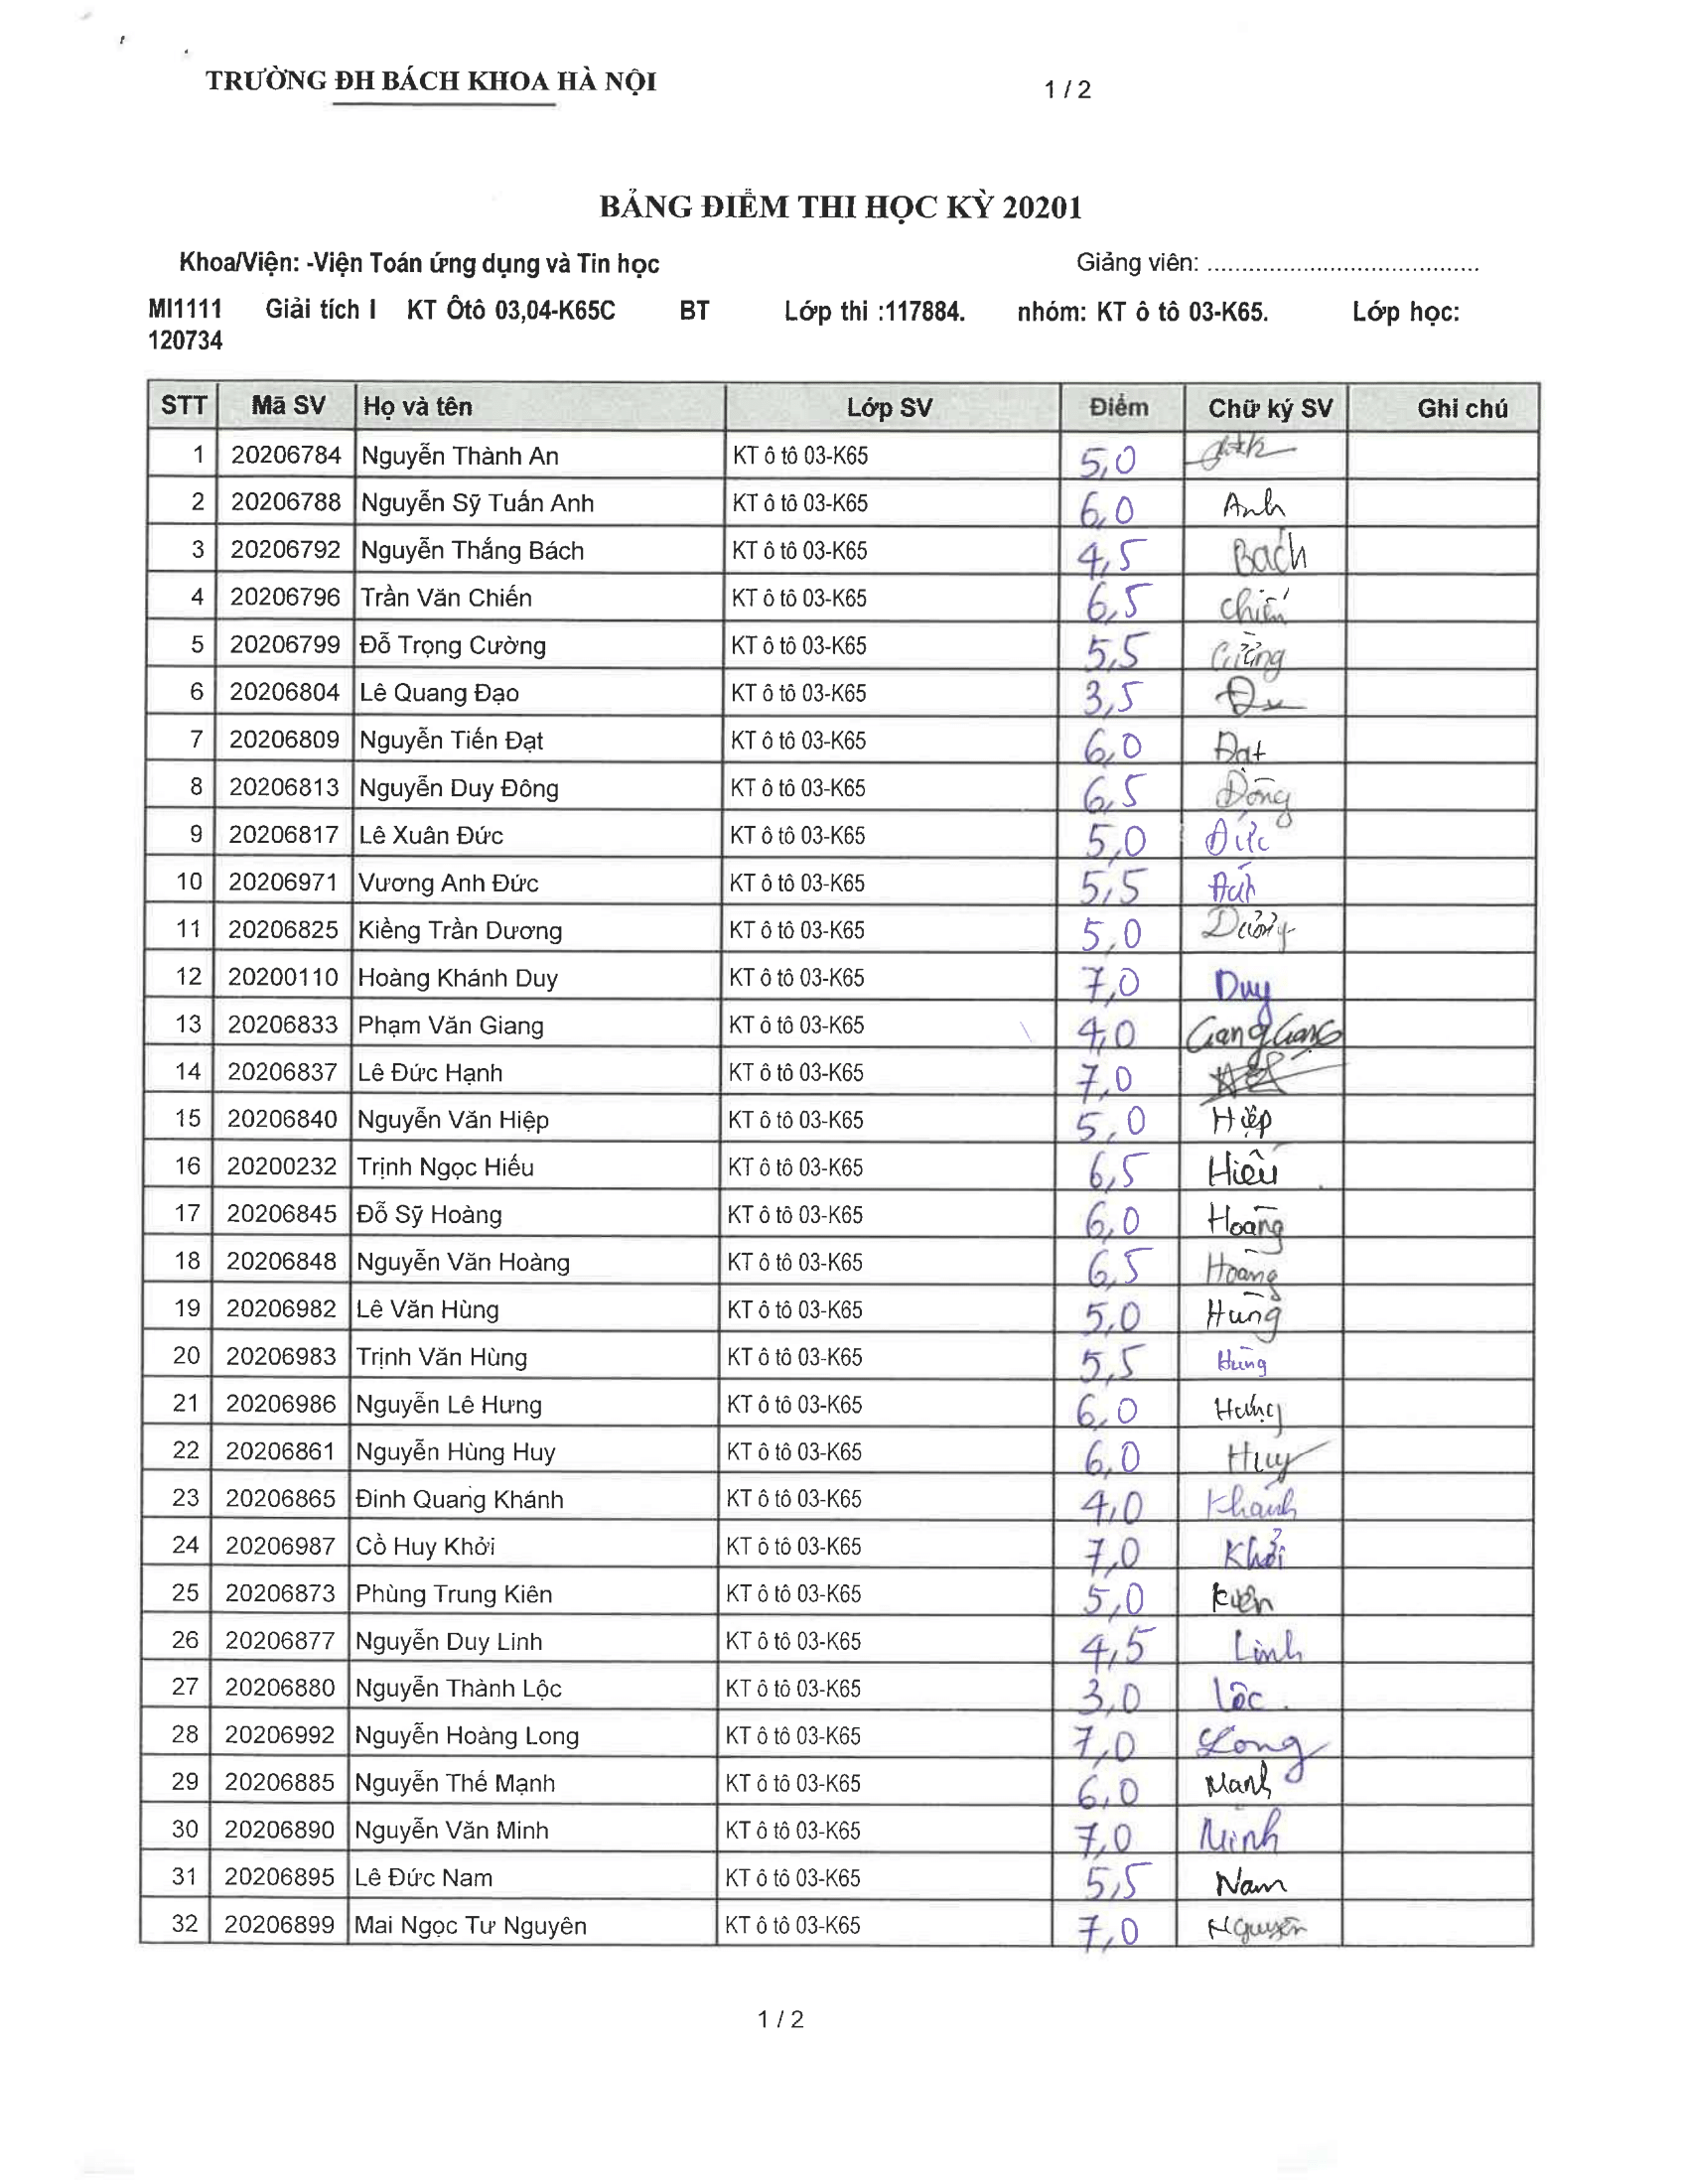 TRƯỜNG ĐH BÁCH KHOA HÀ NỘI 1 / 2
BẢNG ĐIỂM THI HỌC KỲ 20201
Khoa/Viện: -Viện Toán ứng dụng và Tin học Giảng viên: ........................................
MI1111 Giải tích I KT Ôtô 03,04-K65C BT Lớp thi :117884. nhóm: KT ô tô 03-K65. Lớp học:
120734
STT Mã SV Họ và tên Lớp SV Điểm Chữ ký SV Ghi chú
1 20206784 Nguyễn Thành An KT ô tô 03-K65 5,0
2 20206788 Nguyễn Sỹ Tuấn Anh KT ô tô 03-K65 6,0 Anh
3 20206792 Nguyễn Thắng Bách KT ô tô 03-K65 4,5 Bách
4 20206796 Trần Văn Chiến KT ô tô 03-K65 6,5 Chiến
5 20206799 Đỗ Trọng Cường KT ô tô 03-K65 5,5 Cường
6 20206804 Lê Quang Đạo KT ô tô 03-K65 3,5
7 20206809 Nguyễn Tiến Đạt KT ô tô 03-K65 6,0 Đạt
8 20206813 Nguyễn Duy Đông KT ô tô 03-K65 6,5 Đông
9 20206817 Lê Xuân Đức KT ô tô 03-K65 5,0 Đức
10 20206971 Vương Anh Đức KT ô tô 03-K65 5,5
11 20206825 Kiềng Trần Dương KT ô tô 03-K65 5,0 Dương
12 20200110 Hoàng Khánh Duy KT ô tô 03-K65 7,0 Duy
13 20206833 Phạm Văn Giang KT ô tô 03-K65 4,0
14 20206837 Lê Đức Hạnh KT ô tô 03-K65 7,0
15 20206840 Nguyễn Văn Hiệp KT ô tô 03-K65 5,0 Hiệp
16 20200232 Trịnh Ngọc Hiếu KT ô tô 03-K65 6,5 Hiếu
17 20206845 Đỗ Sỹ Hoàng KT ô tô 03-K65 6,0 Hoàng
18 20206848 Nguyễn Văn Hoàng KT ô tô 03-K65 6,5 Hoàng
19 20206982 Lê Văn Hùng KT ô tô 03-K65 5,0 Hùng
20 20206983 Trịnh Văn Hùng KT ô tô 03-K65 5,5 Hùng
21 20206986 Nguyễn Lê Hưng KT ô tô 03-K65 6,0 Hưng
22 20206861 Nguyễn Hùng Huy KT ô tô 03-K65 6,0 Huy
23 20206865 Đinh Quang Khánh KT ô tô 03-K65 4,0 Khánh
24 20206987 Cồ Huy Khởi KT ô tô 03-K65 7,0 Khởi
25 20206873 Phùng Trung Kiên KT ô tô 03-K65 5,0 Kiên
26 20206877 Nguyễn Duy Linh KT ô tô 03-K65 4,5 Linh
27 20206880 Nguyễn Thành Lộc KT ô tô 03-K65 3,0 Lộc
28 20206992 Nguyễn Hoàng Long KT ô tô 03-K65 7,0 Long
29 20206885 Nguyễn Thế Mạnh KT ô tô 03-K65 6,0 Mạnh
30 20206890 Nguyễn Văn Minh KT ô tô 03-K65 7,0 Minh
31 20206895 Lê Đức Nam KT ô tô 03-K65 5,5 Nam
32 20206899 Mai Ngọc Tư Nguyên KT ô tô 03-K65 7,0 Nguyên
1 / 2